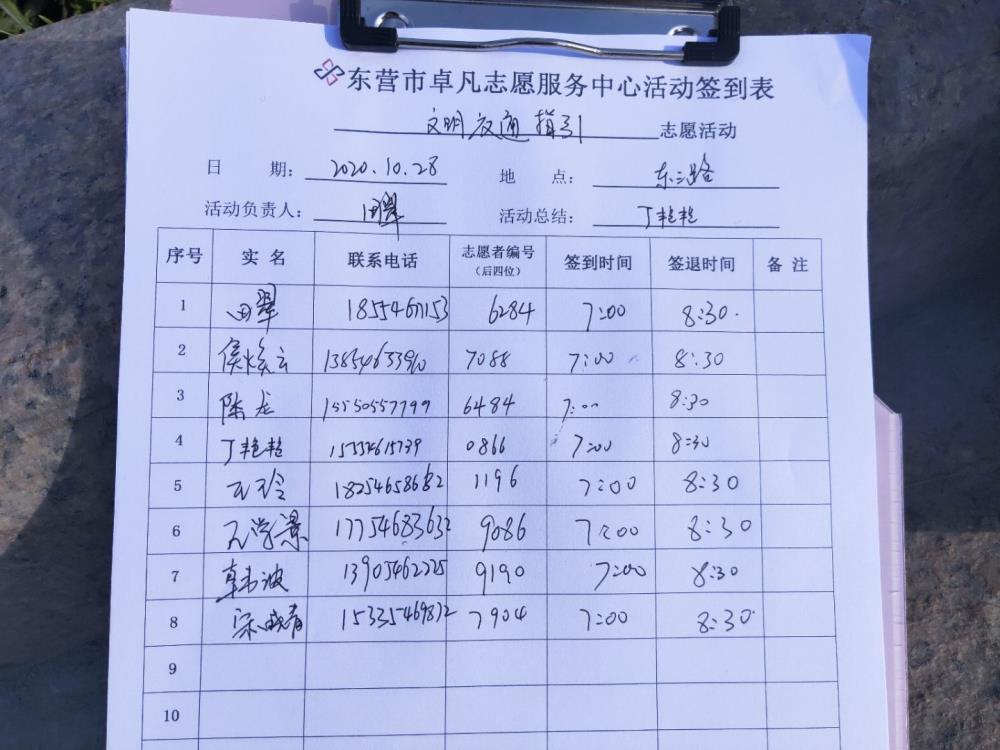 东营市卓凡志愿服务中心活动签到表
文明交通指引 志愿活动
日 期: 2020.10.28 地 点: 东三路
活动负责人: 田翠 活动总结: 丁艳艳
序号 实 名 联系电话 志愿者编号 (后四位) 签到时间 签退时间 备 注
1 田翠 18554671153 6284 7:00 8:30.
2 侯焕云 13854633910 7088 7:00 8:30
3 陈龙 15550557799 6484 7:00 8:30
4 丁艳艳 15554615739 0866 7:00 8:30
5 18254658682 1196 7:00 8:30
6 17754683632 9086 7:00 8:30
7 韩波 13905462325 9190 7:00 8:30
8 宋晓青 15335469872 7904 7:00 8:30
9
10